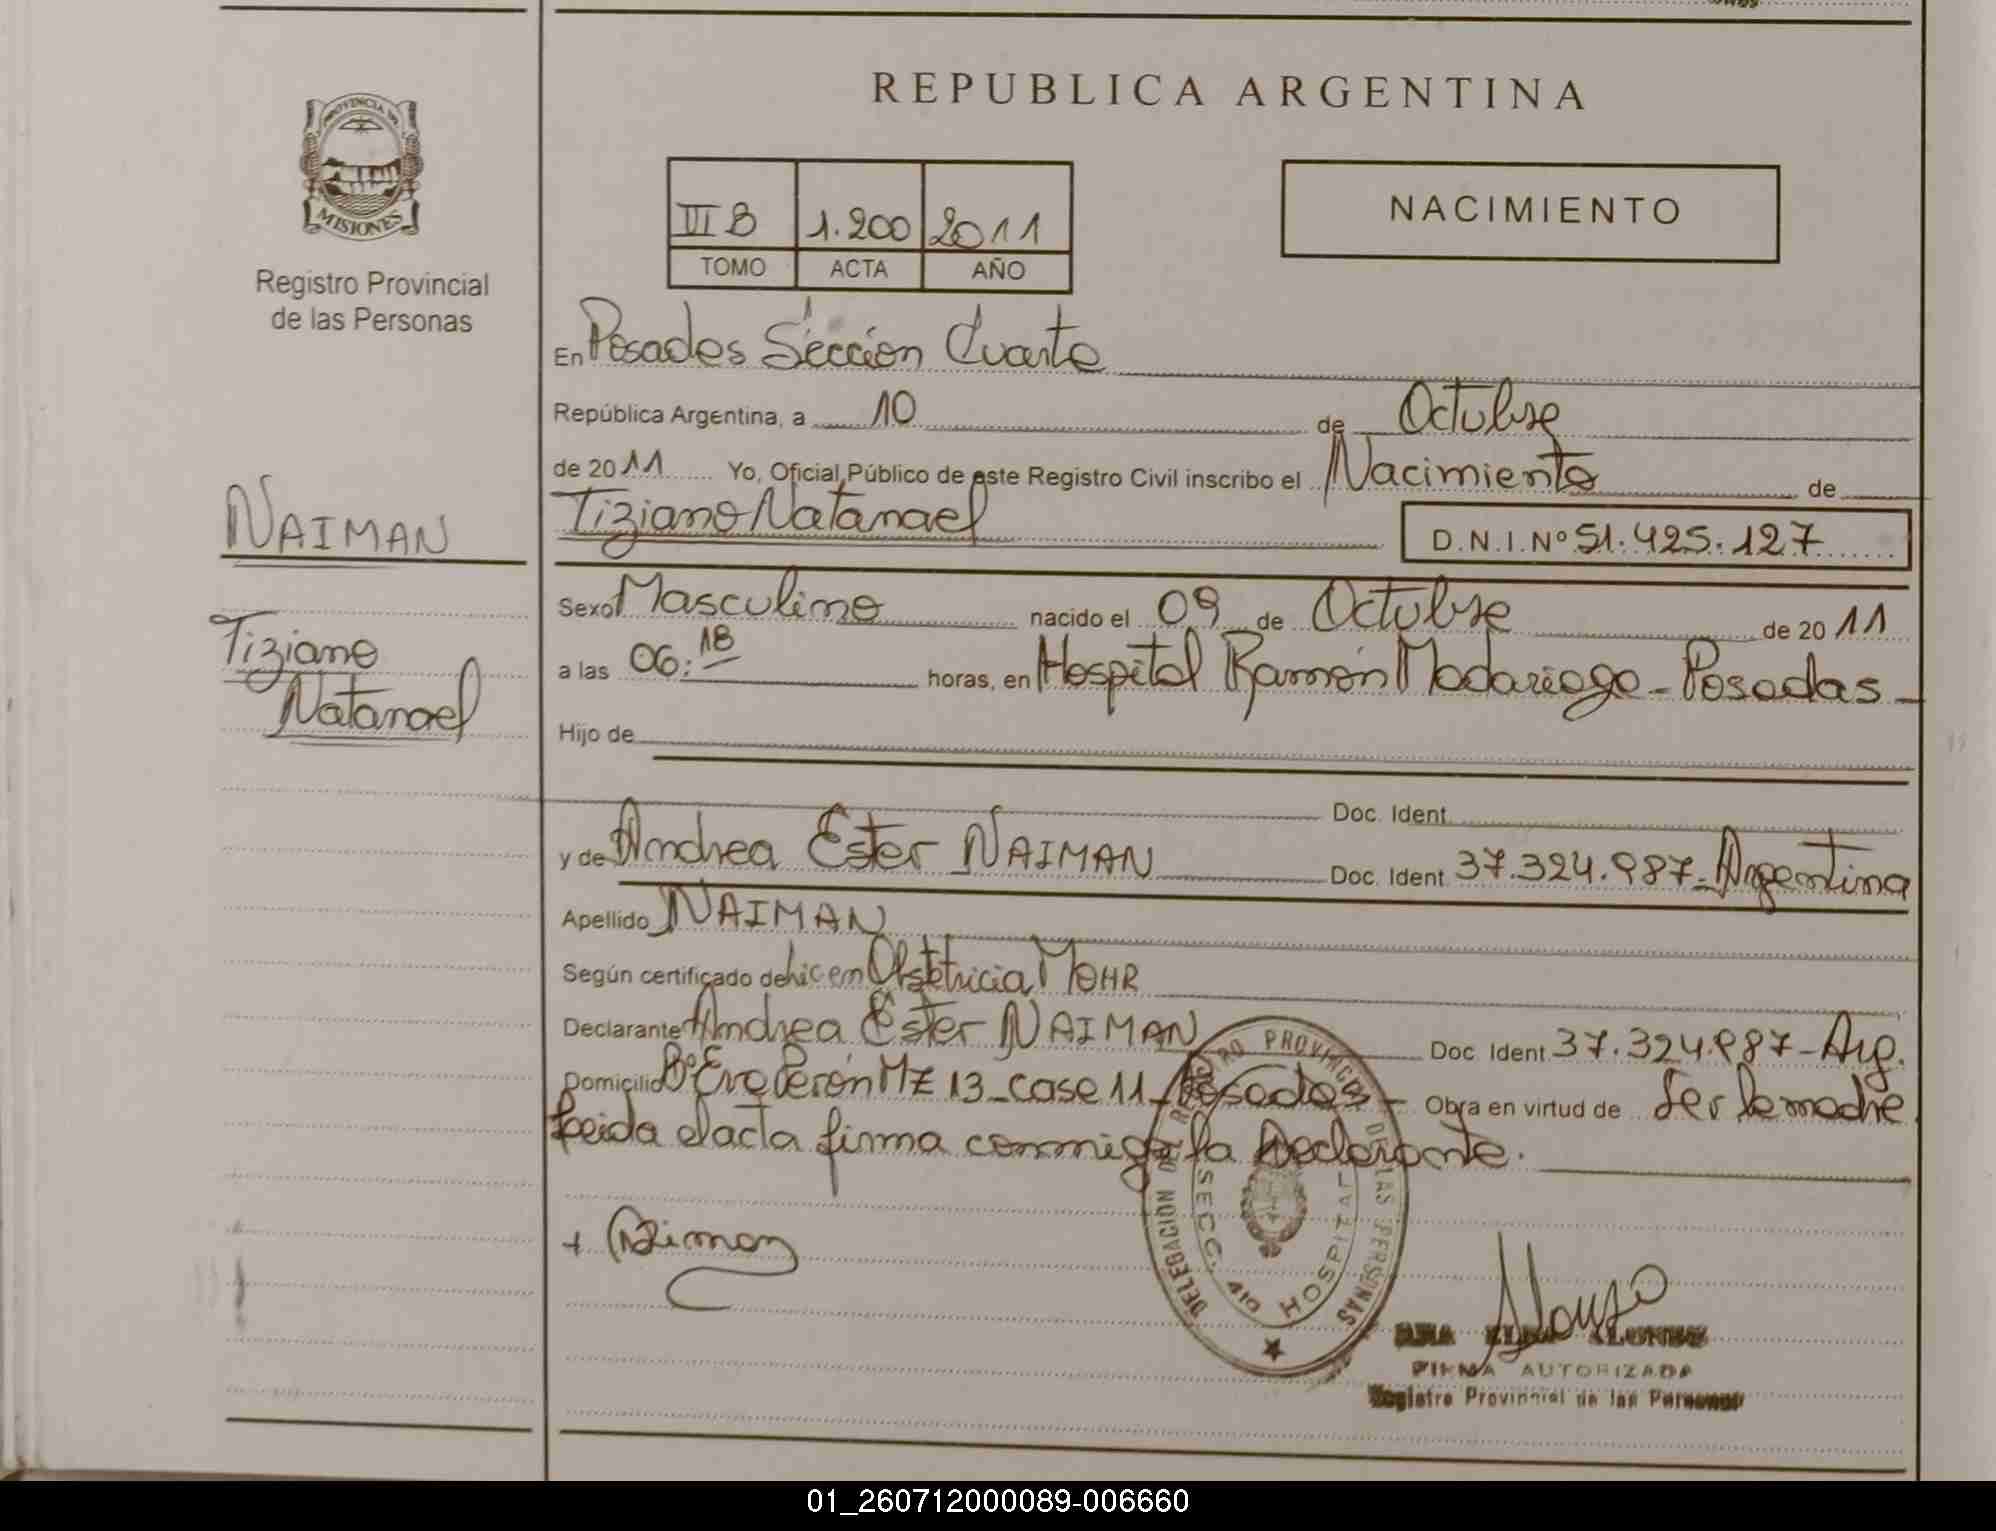 REPUBLICA ARGENTINA
PROVINCIA DE
MISIONES
Registro Provincial
de las Personas
III B 1.200 2011
TOMO ACTA AÑO
NACIMIENTO
En Posadas Sección Cuarta
República Argentina, a 10 de Octubre
de 2011 Yo, Oficial Público de este Registro Civil inscribo el Nacimiento de
Tiziano Natanael
D.N.I. Nº 51.425.127
NAIMAN
Tiziano
Natanael
Sexo Masculino nacido el 09 de Octubre de 2011
a las 06:18 horas, en Hospital Ramón Madariaga - Posadas -
Hijo de
Doc. Ident.
y de Andrea Ester NAIMAN Doc. Ident. 37.324.987 - Argentina
Apellido NAIMAN
Según certificado de Lic en Obstetricia MOHR
Declarante Andrea Ester NAIMAN Doc Ident 37.324.987 - Arg.
Domicilio Bº Eva Perón Mz 13 - casa 11 - Posadas - Obra en virtud de Ser la madre
Leida el acta firma conmigo la Declarante.
+ Naiman
DELEGACION DE REGISTRO PROVINCIAL DE LAS PERSONAS
SECC. 4ta HOSPITAL
Alonso
ALONSO
FIRMA AUTORIZADA
Registro Provincial de las Personas
01_260712000089-006660